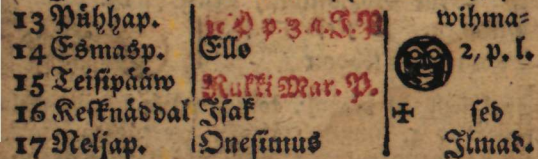 13 Pühhap. wihma=
14 Esmasp. Ello 2, p. l.
15 Teisipääw Rukki Mar. P.
16 Kesknäddal Isak ✠ sed
17 Neljap. Onesimus Ilmad.